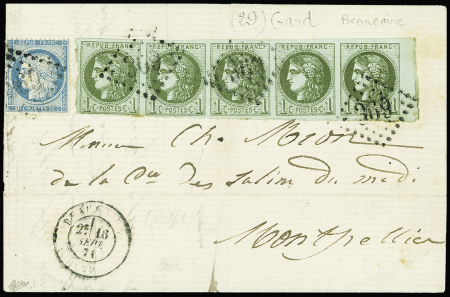 (29) Gard Beaucaire
REPUB·FRANC· REPUB·FRANC· REPUB·FRANC· REPUB·FRANC· REPUB·FRANC·
1 C·POSTES·C· 1 1 C·POSTES·C· 1 1 C·POSTES·C· 1 1 C·POSTES·C· 1
Monsieur Ch. Méon
de la Cie des Salins du midi
Montpellier
2E 16
SEPT.
71